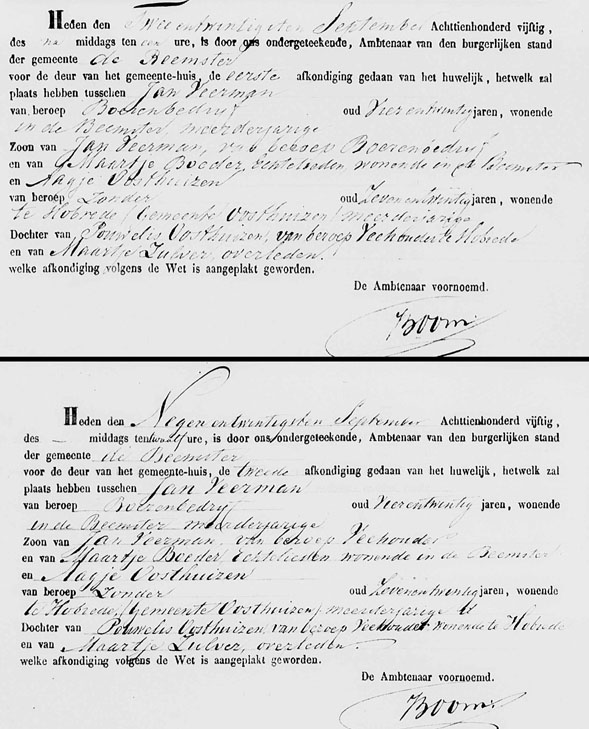 Heden den Twee entwintigsten September Achttienhonderd vijftig,
des na middags ten een ure, is door ons ondergeteekende, Ambtenaar van den burgerlijken stand
der gemeente de Beemster
voor de deur van het gemeente-huis, de eerste afkondiging gedaan van het huwelijk, hetwelk zal
plaats hebben tusschen Jan Veerman
van beroep Boerenbedrijf oud Vier entwintig jaren, wonende
in de Beemster, meerderjarige
Zoon van Jan Veerman, van beroep Boerenbedrijf
en van Maartje Boeder, Echtelieden, wonende in de Beemster
en Aagje Oosthuizen
van beroep Zonder oud Zeven entwintig jaren, wonende
te Hobrede / Gemeente Oosthuizen / meerderjarige
Dochter van Pouwelis Oosthuizen, van beroep Veehouder te Hobrede
en van Maartje Zulver, overleden.
welke afkondiging volgens de Wet is aangeplakt geworden.
De Ambtenaar voornoemd.
Boom
Heden den Negen entwintigsten September Achttienhonderd vijftig,
des — middags ten twaalf ure, is door ons ondergeteekende, Ambtenaar van den burgerlijken stand
der gemeente de Beemster
voor de deur van het gemeente-huis, de tweede afkondiging gedaan van het huwelijk, hetwelk zal
plaats hebben tusschen Jan Veerman
van beroep Boerenbedrijf oud Vier entwintig jaren, wonende
in de Beemster meerderjarige
Zoon van Jan Veerman, van beroep Veehouder
en van Maartje Boeder, Echtelieden wonende in de Beemster
en Aagje Oosthuizen
van beroep Zonder oud Zeven entwintig jaren, wonende
te Hobrede, / Gemeente Oosthuizen / meerderjarige
Dochter van Pouwelis Oosthuizen, van beroep Veehouder wonende te Hobrede
en van Maartje Zulver, overleden.
welke afkondiging volgens de Wet is aangeplakt geworden.
De Ambtenaar voornoemd.
Boom